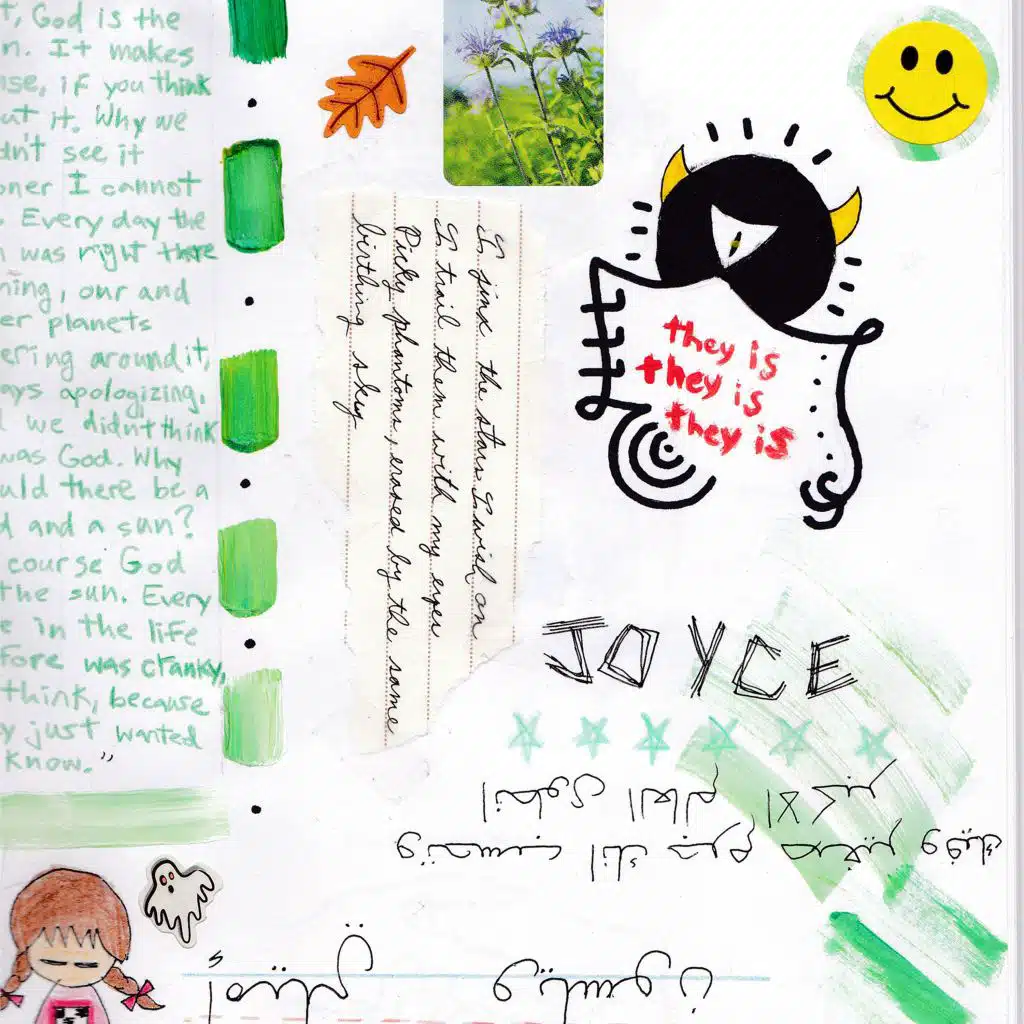 t, God is the
n. It makes
nse, if you think
ut it. Why we
dn't see it
oner I cannot
. Every day the
n was right there
ning, our and
er planets
ering around it,
ays apologizing,
l we didn't think
was God. Why
uld there be a
d and a sun?
course God
the sun. Every
e in the life
fore was cranky,
think, because
y just wanted
know."
I jinx the stars I wish on
I trail them with my eyes
Picky phantoms, erased by the same
birthing sky
they is
they is
they is
JOYCE
وتحسب انك جرم صغير وفيك
انطوى العالم الاكبر
ويلسون